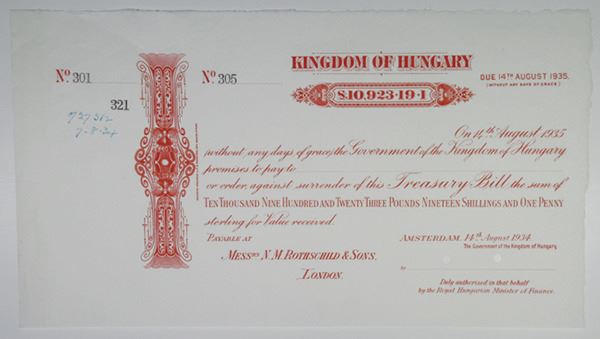 No. 301
321
727362
7-8-34
No. 305
KINGDOM OF HUNGARY
DUE 14TH AUGUST 1935.
(WITHOUT ANY DAYS OF GRACE)
£10,923-19-1
On 14th August 1935
without any days of grace, the Government of the Kingdom of Hungary
promises to pay to
or order, against surrender of this Treasury Bill the sum of
TEN THOUSAND NINE HUNDRED AND TWENTY THREE POUNDS NINETEEN SHILLINGS AND ONE PENNY
sterling for Value received.
PAYABLE AT
MESSRS N. M. ROTHSCHILD & SONS,
LONDON.
AMSTERDAM, 14th August 1934.
The Government of the Kingdom of Hungary,
by
Duly authorised in that behalf
by the Royal Hungarian Minister of Finance.